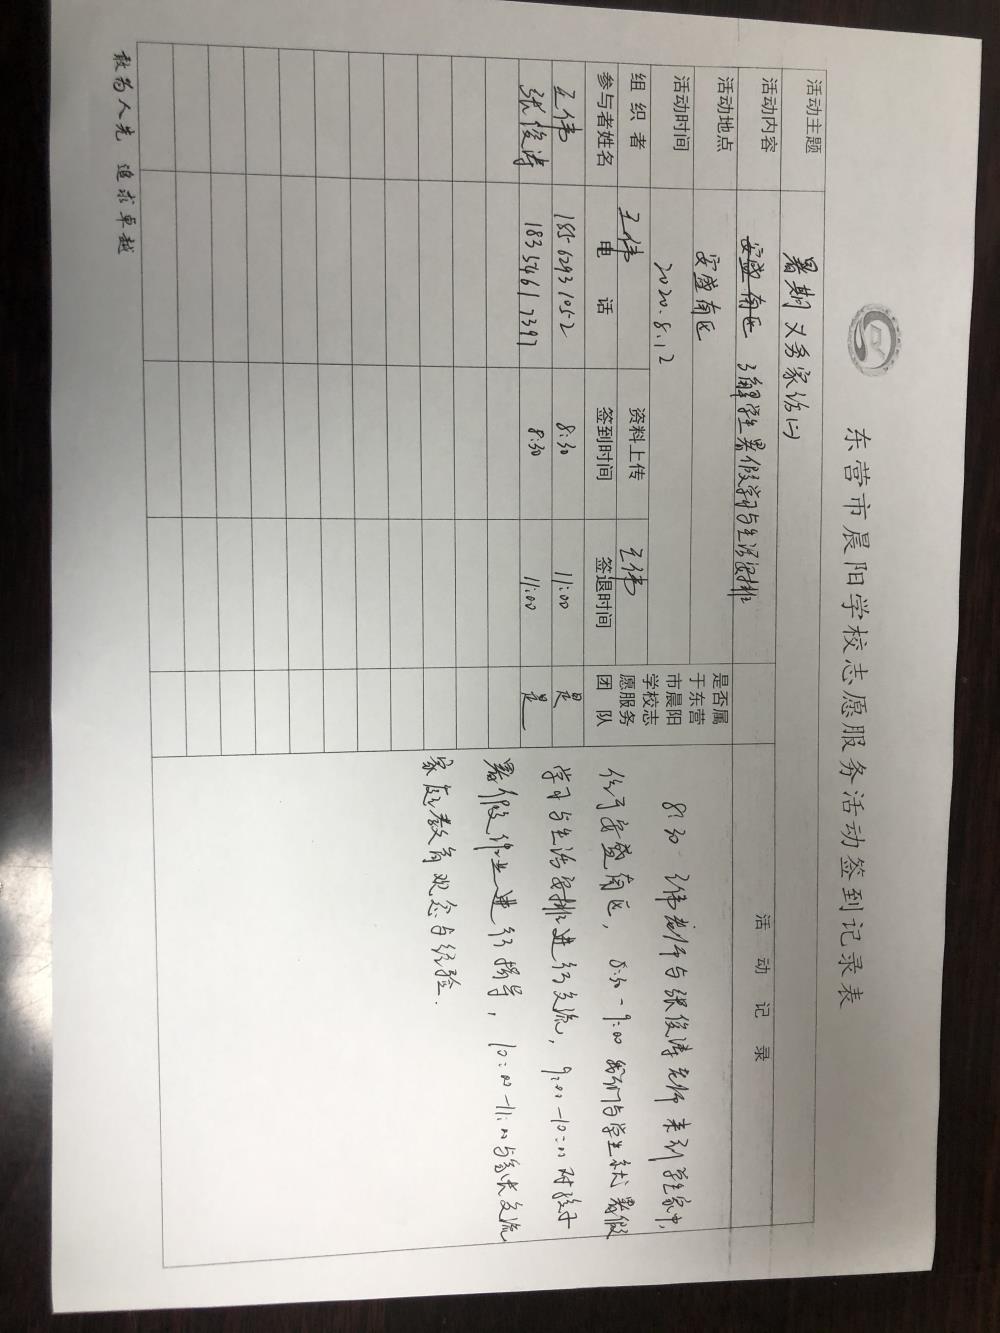 东营市晨阳学校志愿服务活动签到记录表
活动主题 暑期义务家访(二)
活动内容 安盛南区 了解学生暑假学习与生活安排
活动地点 安盛南区
活动时间 2020.8.12
组织者 王伟 资料上传 王伟
参与者姓名 电话 签到时间 签退时间 是否属于东营市晨阳学校志愿服务团队
王伟 15562931052 8:30 11:00 是
张俊涛 18354617397 8:30 11:00 是
活动记录
8:30 王伟老师与张俊涛老师来到学生家中,
位于安盛南区, 8:30-9:00 我们与学生就暑假
学习与生活安排进行交流, 9:00-10:00 对孩子
暑假作业进行指导, 10:00-11:00 与家长交流
家庭教育观念与经验.
敢为人先 追求卓越